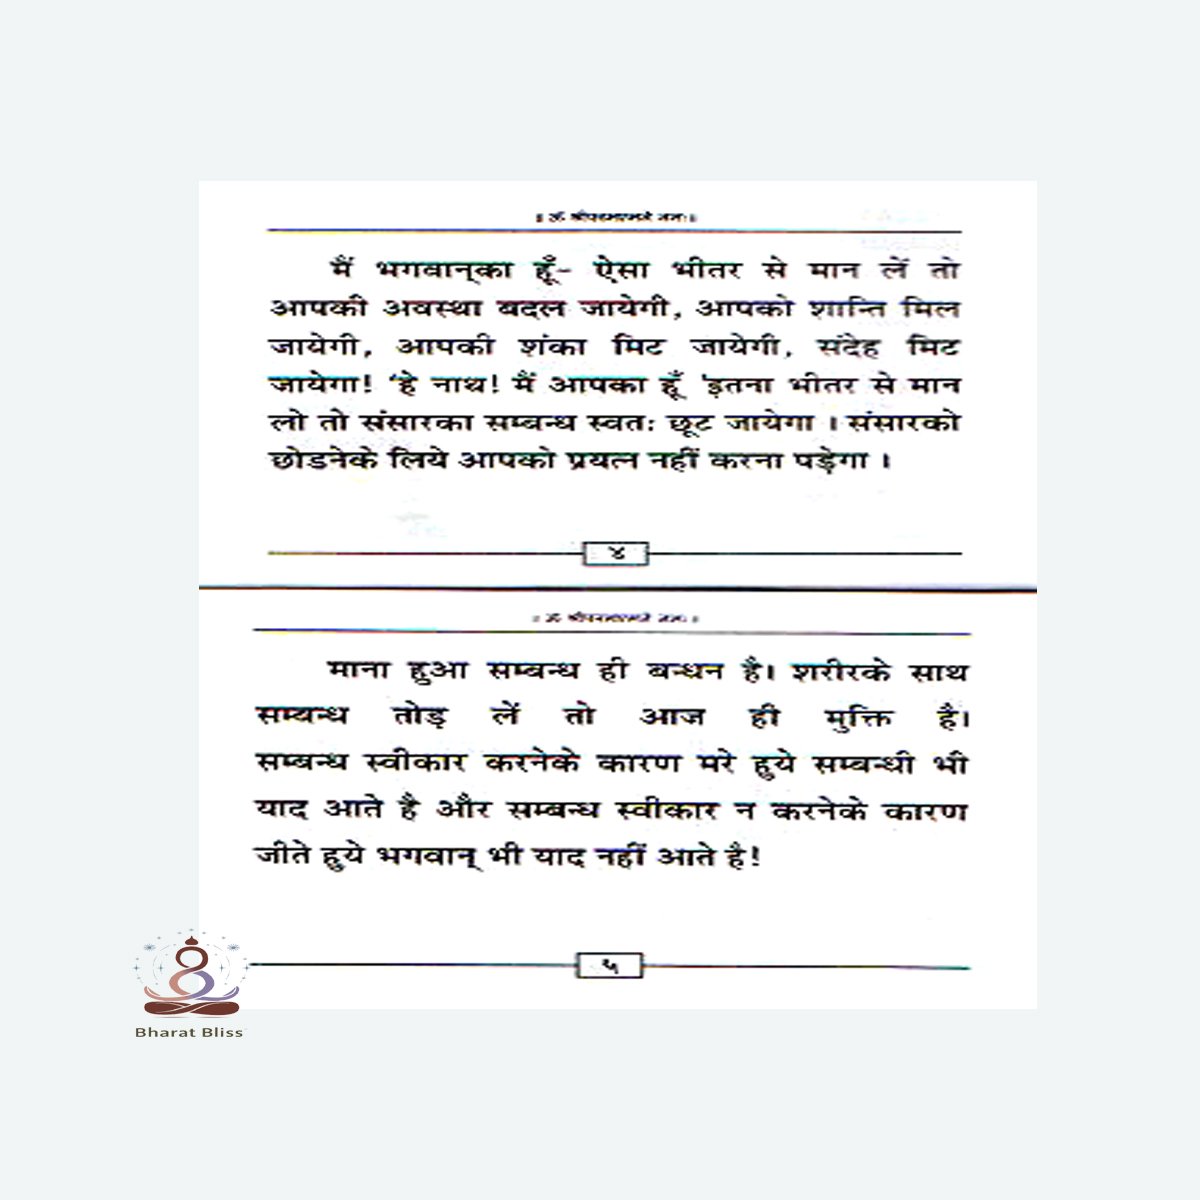 ॥ ॐ श्रीपरमात्मने नमः॥
मैं भगवान्‌का हूँ- ऐसा भीतर से मान लें तो
आपकी अवस्था बदल जायेगी, आपको शान्ति मिल
जायेगी, आपकी शंका मिट जायेगी, संदेह मिट
जायेगा! 'हे नाथ! मैं आपका हूँ 'इतना भीतर से मान
लो तो संसारका सम्बन्ध स्वतः छूट जायेगा । संसारको
छोडनेके लिये आपको प्रयत्न नहीं करना पड़ेगा ।
४
॥ ॐ श्रीपरमात्मने नमः ॥
माना हुआ सम्बन्ध ही बन्धन है। शरीरके साथ
सम्बन्ध तोड़ लें तो आज ही मुक्ति है।
सम्बन्ध स्वीकार करनेके कारण मरे हुये सम्बन्धी भी
याद आते है और सम्बन्ध स्वीकार न करनेके कारण
जीते हुये भगवान् भी याद नहीं आते है!
५
Bharat Bliss